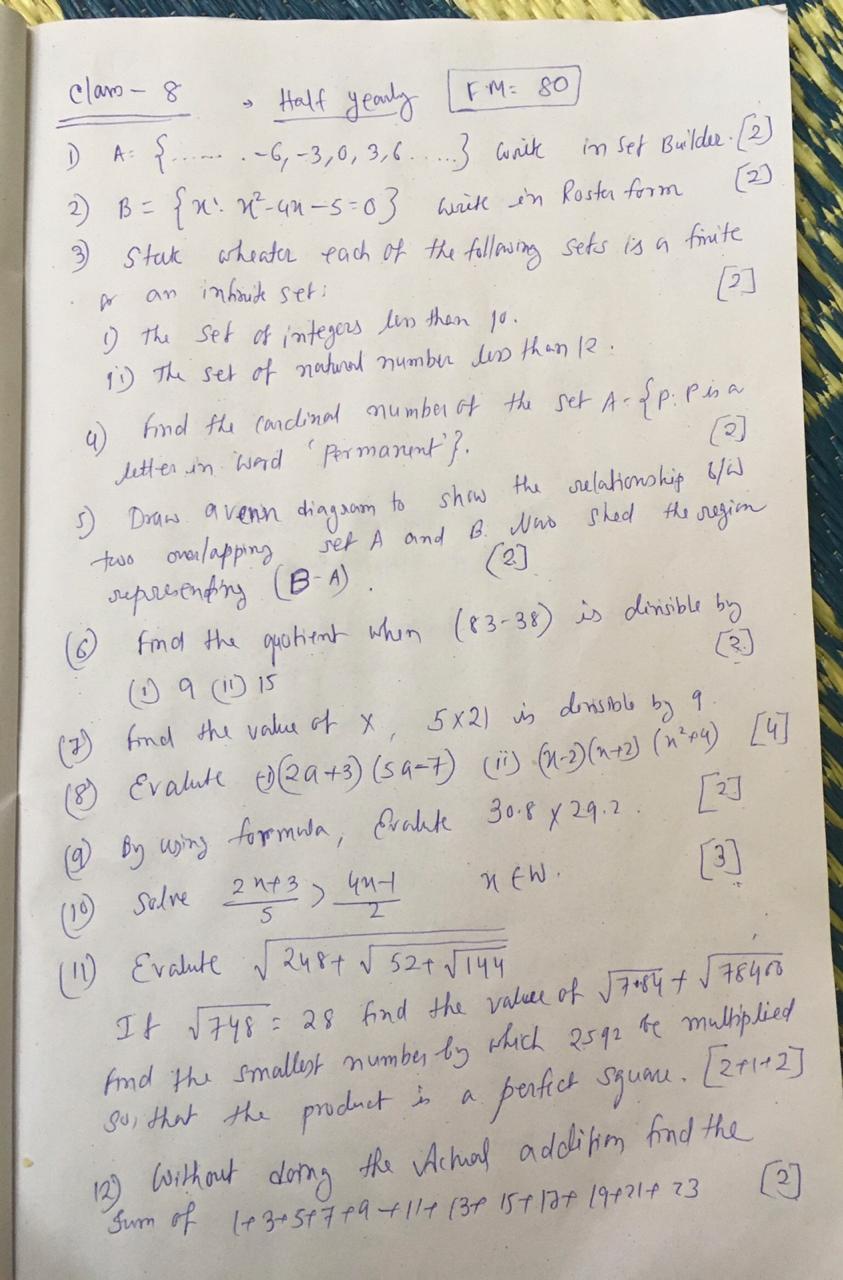 Class - 8 → Half yearly F.M= 80
1) A= {....... -6, -3, 0, 3, 6 .....} write in Set Builder. [2]
2) B = {x: x²-4x-5=0} write in Roster form [2]
3) State wheater each of the following sets is a finite
or an infinite set: [2]
i) The set of integers less than 10.
ii) The set of natural number less than 12.
4) find the Cardinal number of the set A= {P: P is a
letter in word 'Permanent'}. [2]
5) Draw a venn diagram to show the relationship b/w
two overlapping set A and B. Now Shed the region
representing (B-A). [2]
(6) find the quotient when (83-38) is divisible by
(i) 9 (ii) 15 [2]
(7) find the value of x, 5x21 is divisible by 9.
(8) Evalute (i) (2a+3) (5a-7) (ii) (x-2)(x+2) (x²+4) [4]
(9) By using formula, Evalute 30.8 x 29.2. [2]
(10) Solve 2x+3/5 > 4x-1/2 x ∈ W. [3]
(11) Evalute √248+ √52+ √144
If √748 = 28 find the value of √7.84 + √78400
find the smallest number by which 2592 be multiplied
so, that the product is a perfect square. [2+1+2]
12) Without doing the Actual addition find the
Sum of 1+3+5+7+9+11+13+15+17+19+21+23 [2]